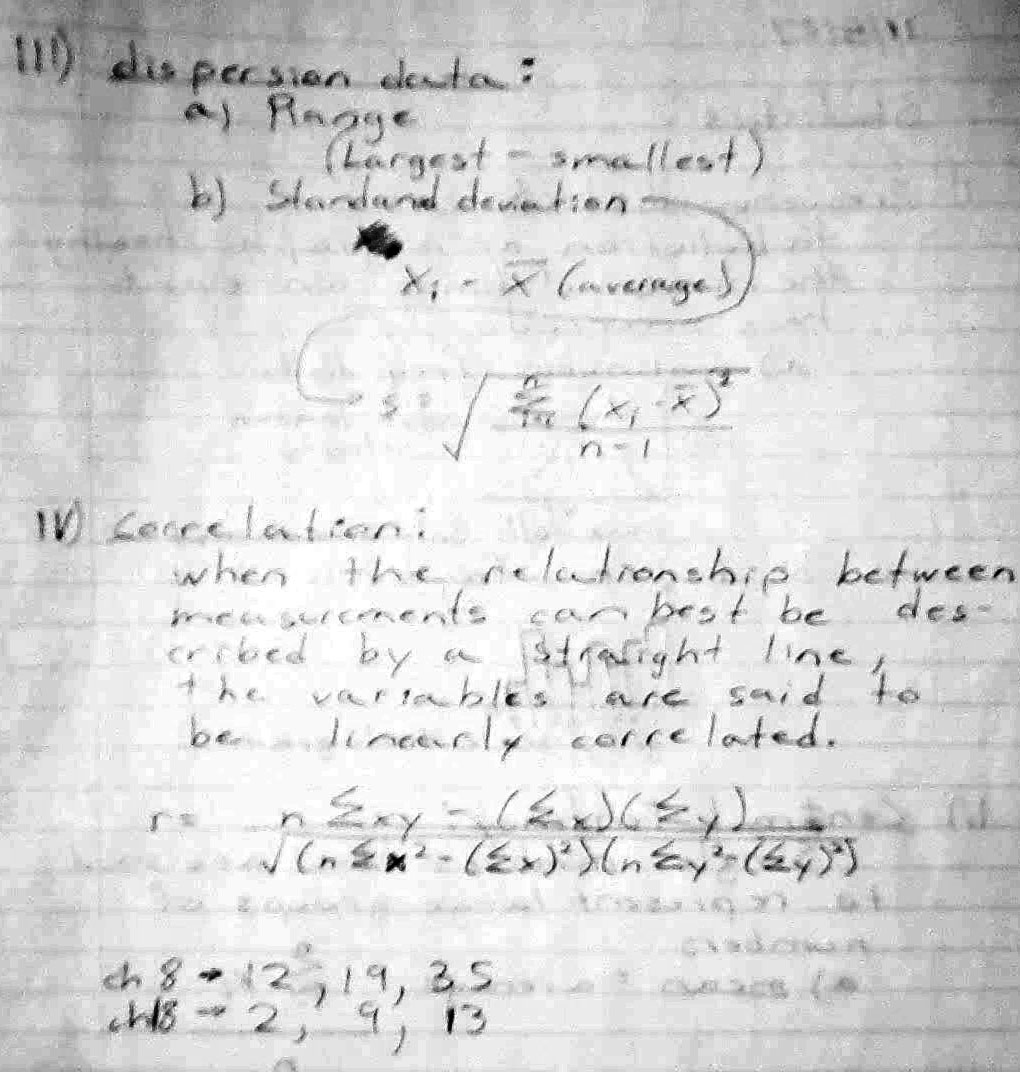 III) dispersion data:
a) Range
(Largest - smallest)
b) Standard deviation
xᵢ - x̄ (average)
s = √(Σⁿᵢ₌₁ (xᵢ - x̄)² / n-1)
IV) Correlation:
when the relationship between
measurements can best be des-
cribed by a straight line,
the variables are said to
be linearly correlated.
r = n Σxy - (Σx)(Σy)
√(nΣx² - (Σx)²)(nΣy² - (Σy)²)
ch 8 → 12, 19, 35
ch 18 → 2, 9, 13